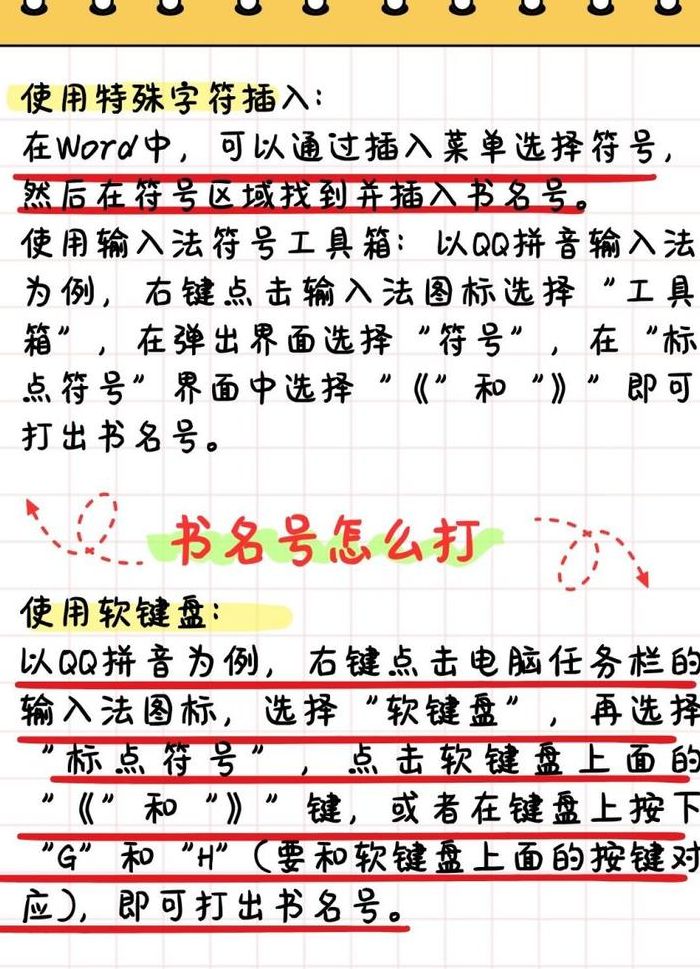 使用特殊字符插入：
在Word中，可以通过插入菜单选择符号，
然后在符号区域找到并插入书名号。
使用输入法符号工具箱：以QQ拼音输入法
为例，右键点击输入法图标选择“工具
箱”，在弹出界面选择“符号”，在“标
点符号”界面中选择“《”和“》”即可
打出书名号。
书名号怎么打
使用软键盘：
以QQ拼音为例，右键点击电脑任务栏的
输入法图标，选择“软键盘”，再选择
“标点符号”，点击软键盘上面的
“《”和“》”键，或者在键盘上按下
“G”和“H”（要和软键盘上面的按键对
应），即可打出书名号。